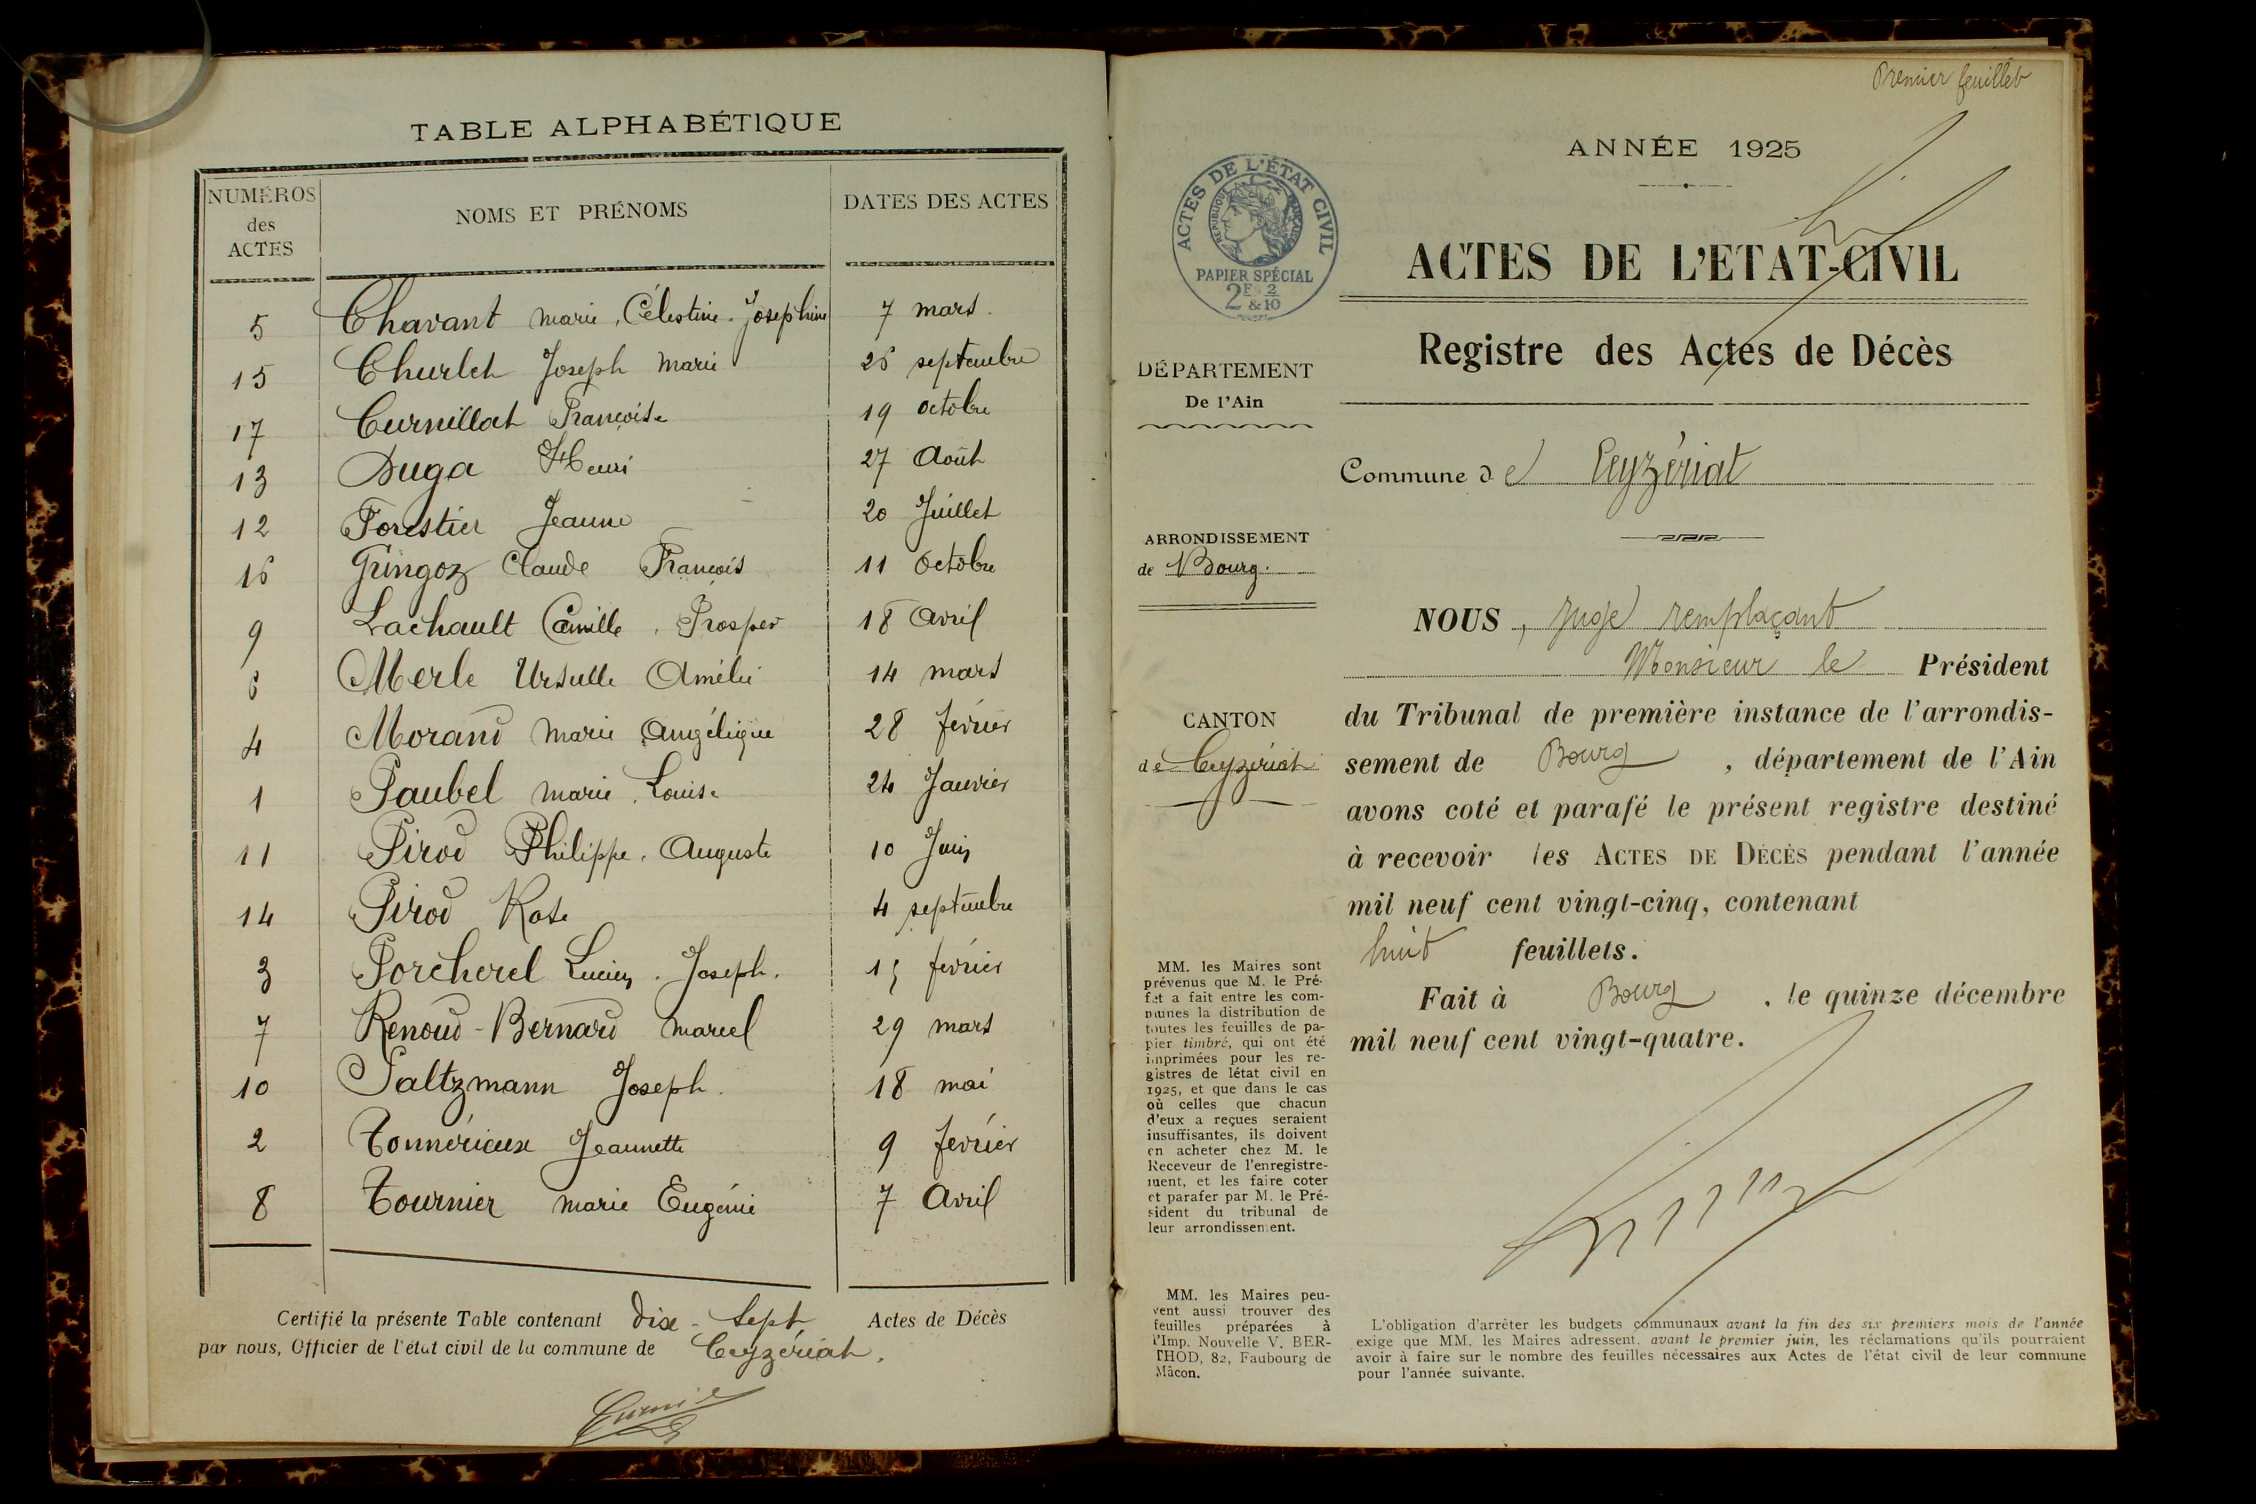 TABLE ALPHABÉTIQUE
NUMÉROS des ACTES NOMS ET PRÉNOMS DATES DES ACTES
5 Chavant Marie, Célestine. Joséphine 7 mars.
15 Churlet Joseph Marie 26 septembre
17 Curnillat Françoise 19 octobre
13 Duga Henri 27 Août
12 Forestier Jeanne 20 Juillet
16 Gringoz Claude François 11 Octobre
9 Lachault Camille, Prosper 18 Avril
6 Merle Ursulle Amélie 14 mars
4 Morand Marie Angélique 28 février
1 Paubel Marie, Louise 24 Janvier
11 Pirod Philippe, Auguste 10 Juin
14 Pirod Rose 4 septembre
3 Porcherel Lucien. Joseph. 15 février
7 Renoud-Bernard Marcel 29 mars
10 Saltzmann Joseph. 18 mai
2 Tonnérieux Jeannette 9 février
8 Tournier Marie Eugénie 7 Avril
Certifié la présente Table contenant Dix-Sept Actes de Décès
par nous, Officier de l'état civil de la commune de Ceyzériat.
Premier feuillet
ANNÉE 1925
ACTES DE L'ÉTAT CIVIL
RÉPUBLIQUE FRANÇAISE
PAPIER SPÉCIAL
2F 2
& 10
ACTES DE L'ETAT-CIVIL
Registre des Actes de Décès
DÉPARTEMENT
De l'Ain
Commune de Ceyzériat
ARRONDISSEMENT
de Bourg.
CANTON
de Ceyzériat
NOUS, Juge remplaçant
Monsieur le Président
du Tribunal de première instance de l'arrondis-
sement de Bourg, département de l'Ain
avons coté et parafé le présent registre destiné
à recevoir les ACTES DE DÉCÈS pendant l'année
mil neuf cent vingt-cinq, contenant
huit feuillets.
Fait à Bourg, le quinze décembre
mil neuf cent vingt-quatre.
MM. les Maires sont
prévenus que M. le Pré-
fet a fait entre les com-
munes la distribution de
toutes les feuilles de pa-
pier timbré, qui ont été
imprimées pour les re-
gistres de létat civil en
1925, et que dans le cas
où celles que chacun
d'eux a reçues seraient
insuffisantes, ils doivent
en acheter chez M. le
Receveur de l'enregistre-
ment, et les faire coter
et parafer par M. le Pré-
sident du tribunal de
leur arrondissement.
MM. les Maires peu-
vent aussi trouver des
feuilles préparées à
l'Imp. Nouvelle V. BER-
THOD, 82, Faubourg de
Mâcon.
L'obligation d'arrêter les budgets communaux avant la fin des six premiers mois de l'année
exige que MM. les Maires adressent, avant le premier juin, les réclamations qu'ils pourraient
avoir à faire sur le nombre des feuilles nécessaires aux Actes de l'état civil de leur commune
pour l'année suivante.